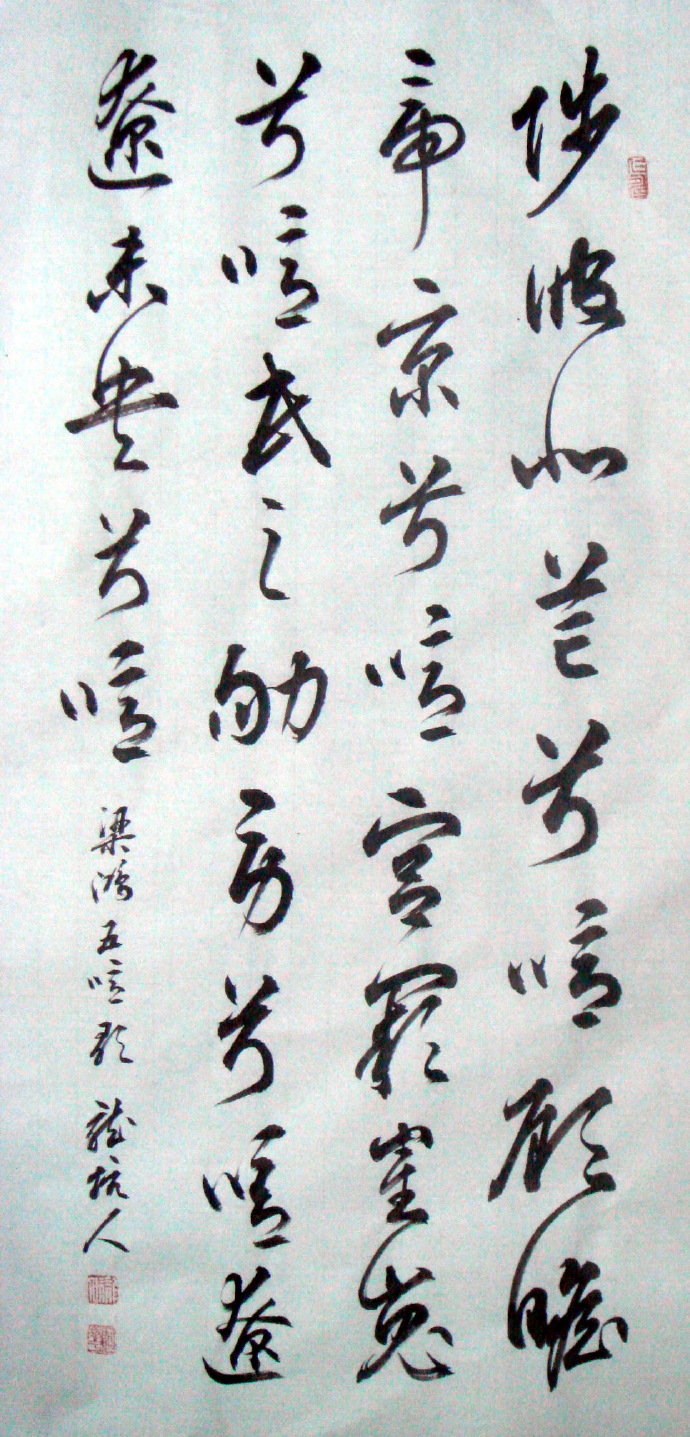 陟彼北芒兮噫顧瞻
帝京兮噫宮闕崔嵬
兮噫民之劬勞兮噫遼
遼未央兮噫 梁鴻五噫歌 龍坑人